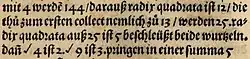 mit 4 werdē 144/ darauß radix quadrata ist 12/ die
thů zům ersten collect nemlich zů 13 / werden 25. rad
dix quadrata auß 25 ist 5 beschleüßt beide wurtzeln.
dañ √ 4 ist 2. √ 9 ist 3. pringen in einer summa 5